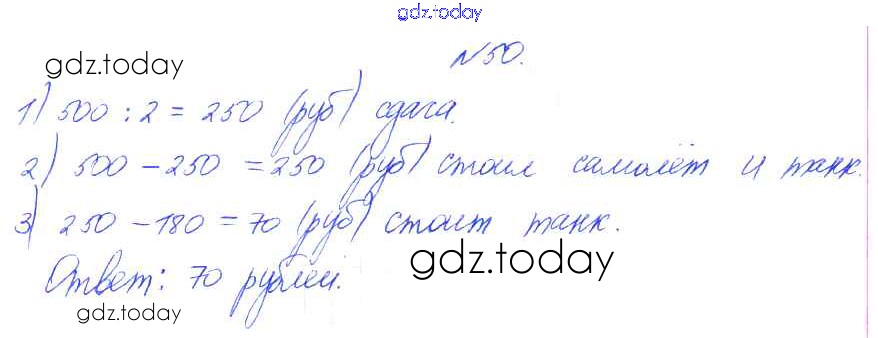 gdz.today
№50.
gdz.today
1) 500 : 2 = 250 (руб) сдача.
2) 500 - 250 = 250 (руб) стоил самолёт и танк.
3) 250 - 180 = 70 (руб) стоит танк.
Ответ: 70 рублей.
gdz.today
gdz.today